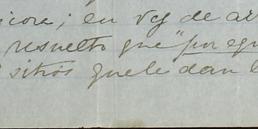 icore; en vez de ar
resuelto que "por equ
sitios que le dan l